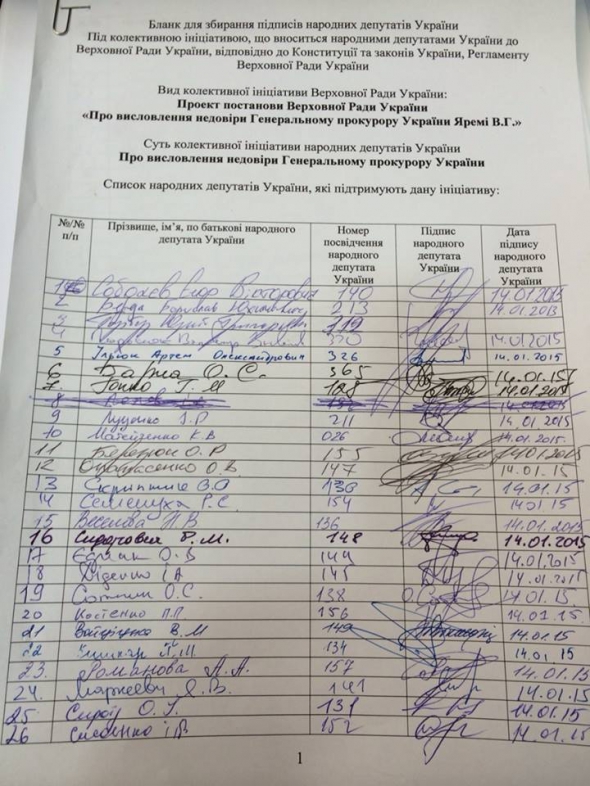 Бланк для збирання підписів народних депутатів України
Під колективною ініціативою, що вноситься народними депутатами України до
Верховної Ради України, відповідно до Конституції та законів України, Регламенту
Верховної Ради України
Вид колективної ініціативи Верховної Ради України:
Проект постанови Верховної Ради України
«Про висловлення недовіри Генеральному прокурору України Яремі В.Г.»
Суть колективної ініціативи народних депутатів України
Про висловлення недовіри Генеральному прокурору України
Список народних депутатів України, які підтримують дану ініціативу:
№/№ п/п Прізвище, ім’я, по батькові народного депутата України Номер посвідчення народного депутата України Підпис народного депутата України Дата підпису народного депутата України
1 Соболєв Єгор Вікторович 140 14.01.2015
2 213 14.01.2015
3 119
4 320 14.01.2015
5 Іллюк Артем Олександрович 326 14.01.2015
6 Барна О.С. 365 14.01.15
7 Гопко Г.М 128 14.01.2015
8
9 Луценко І.В 211 14.01.2015
10 Матейченко К.В 026 14.01.2015
11 Березюк О.Р 155 14.01.2015
12 О.В 147 14.01.15
13 Скрипник О.О 130 14.01.15
14 Семенуха Р.С. 154 14.01.15
15 136 14.01.2015
16 Сидорович Р.М. 148 14.01.2015
17 Єднак О.В 144 14.01.2015
18 Діденко І.А 145 14.01.2015
19 Сотник О.С. 138 14.01.15
20 Костенко П.П. 156 14.01.15
21 В.М 14.01.15
22 134 14.01.15
23. Романова А.А. 157 14.01.15
24. Маркевич Я.В. 141 14.01.15
25 Сироїд О.І. 131 14.01.15
26 І.В 152 14.01.15
1